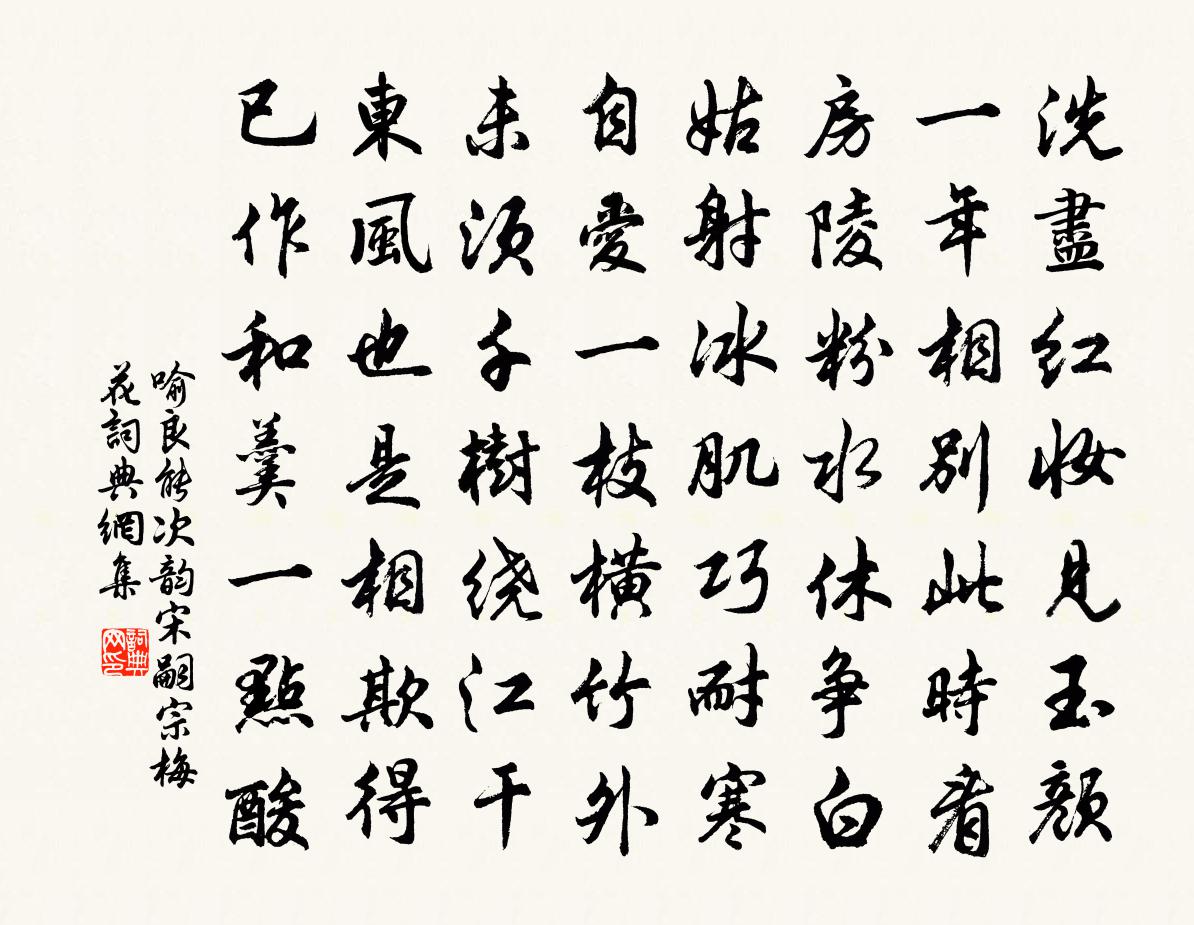 洗盡紅妝見玉顏
一年相別此時看
房陵粉水休爭白
姑射冰肌巧耐寒
自愛一枝橫竹外
未須千樹繞江干
東風也是相欺得
已作和羹一點酸
喻良能次韵宋嗣宗梅
花詞典網集
詞典
网印